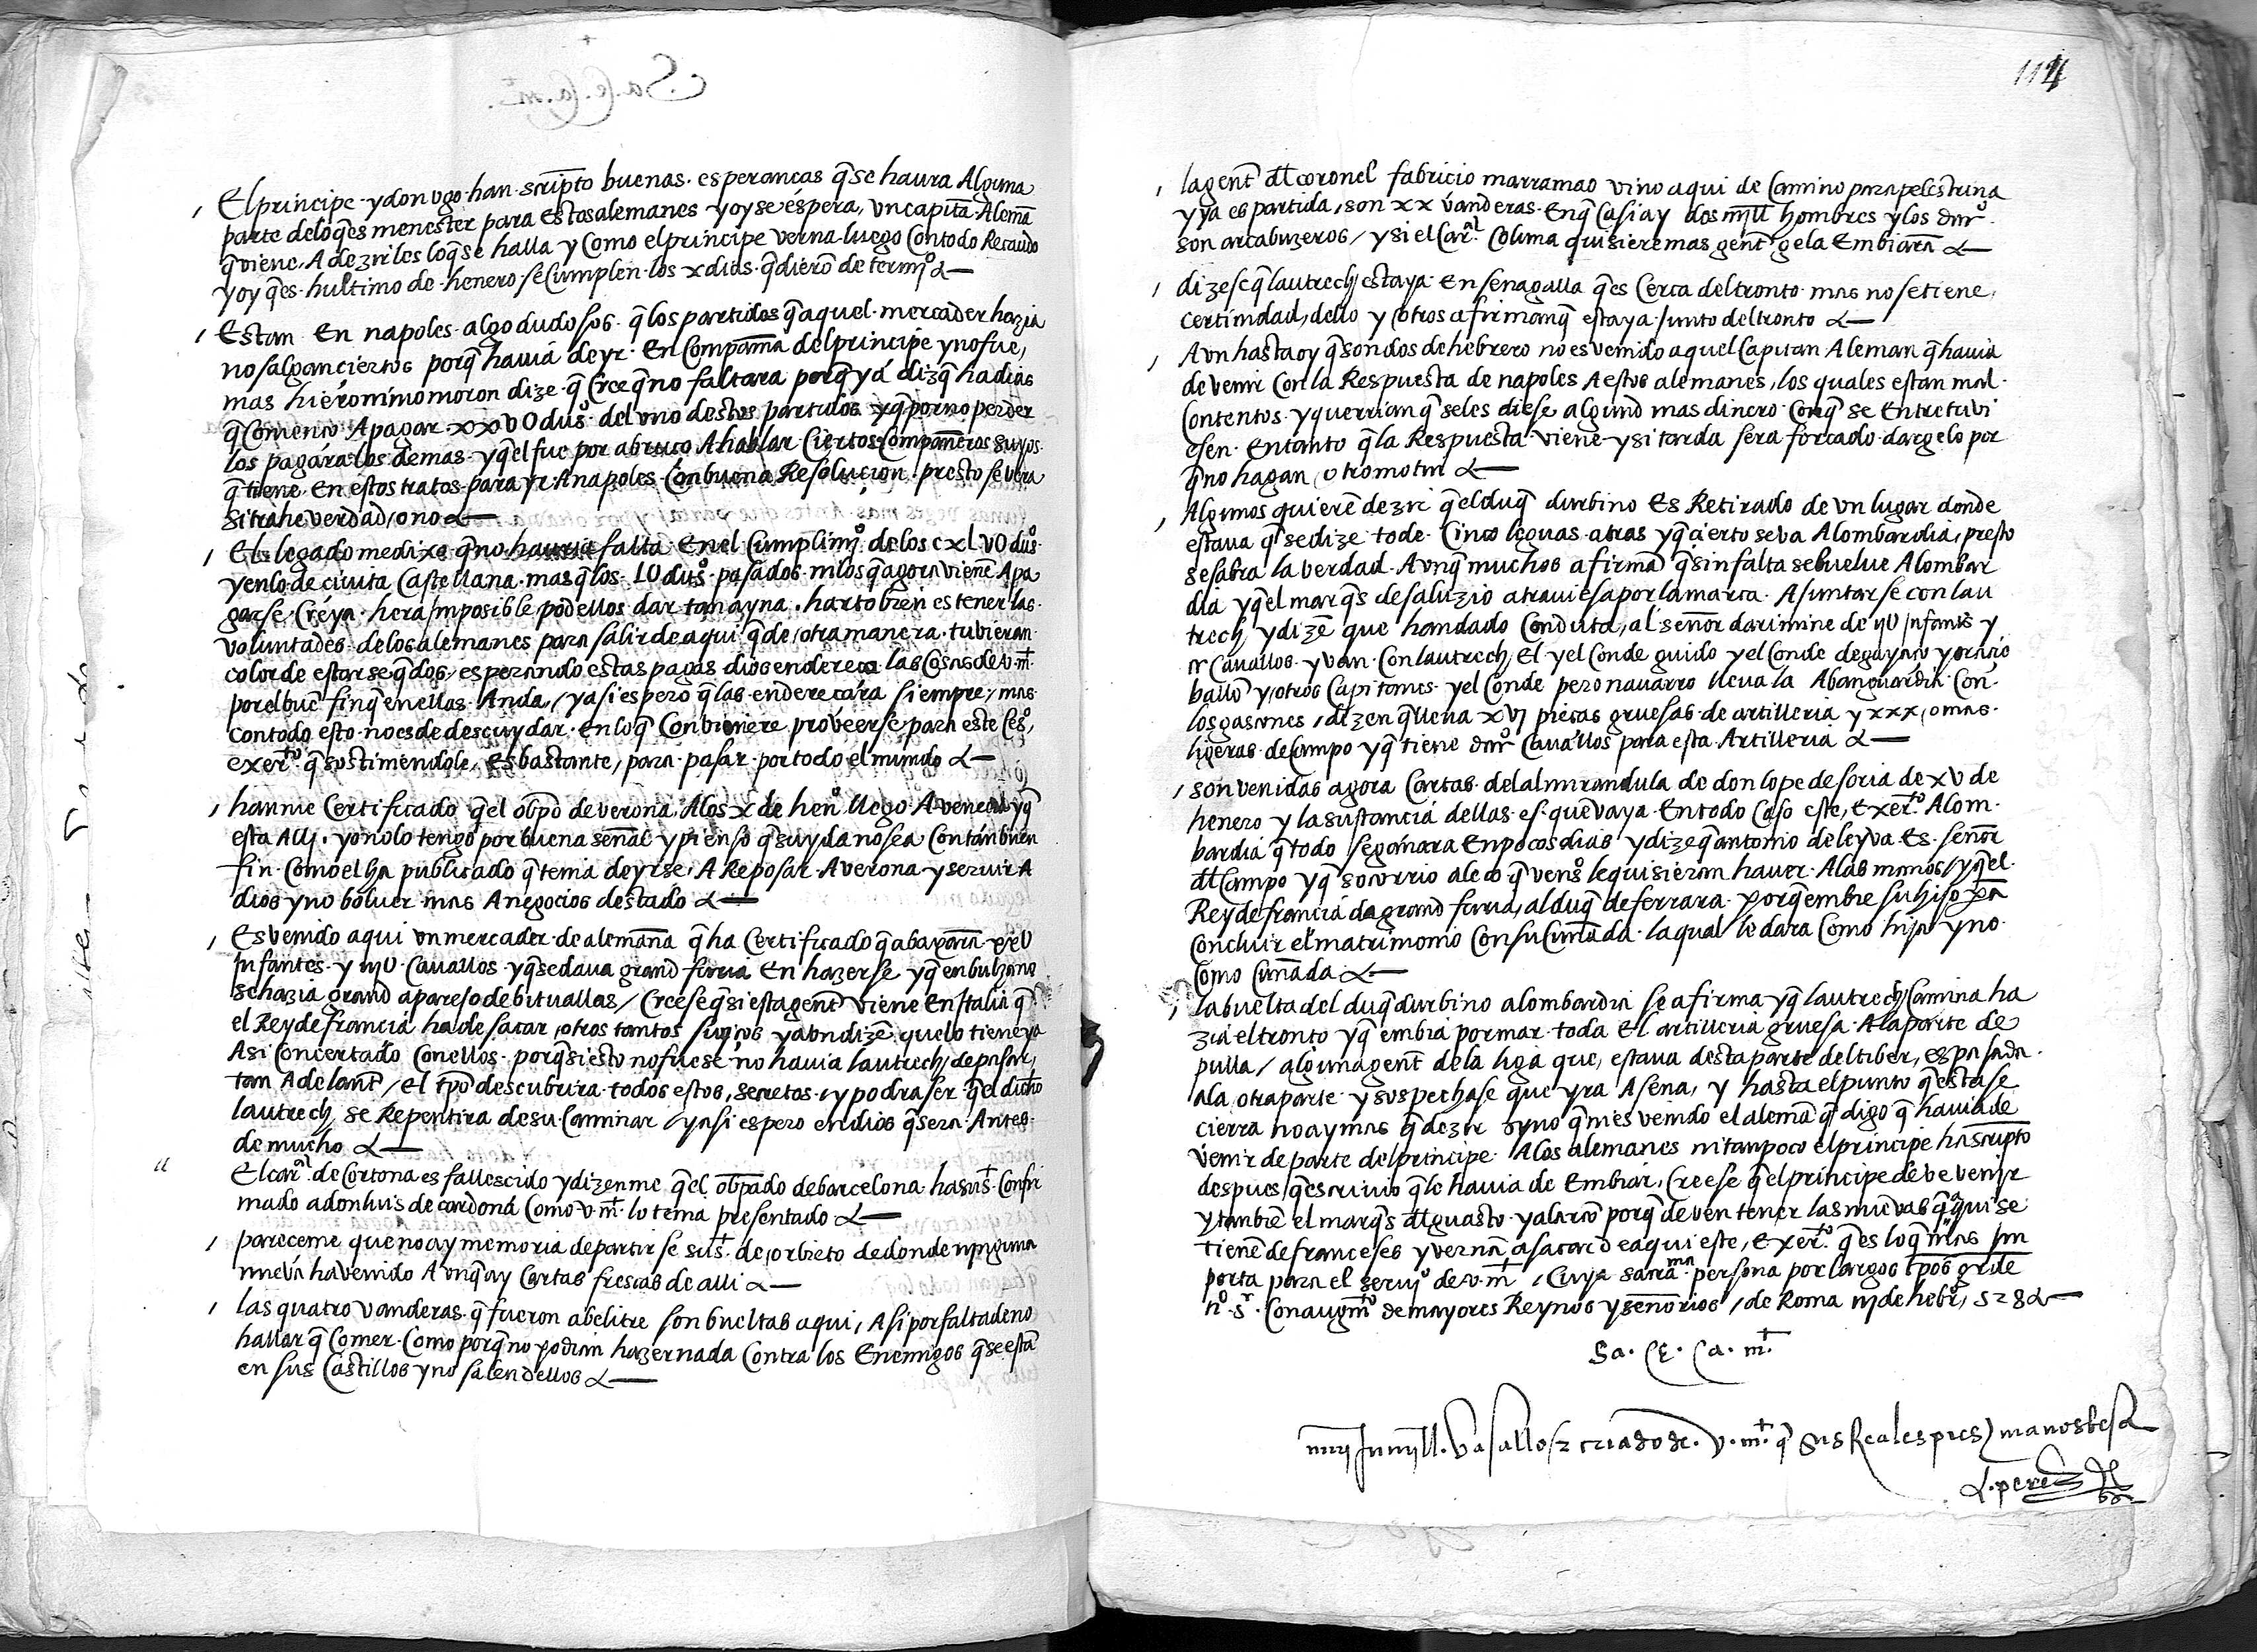 El principe y don ugo han scripto buenas esperanças q̃ se haura Alguna
parte de lo q̃es menester para Estos alemanes y oy se éspera, un capitã Alemã
q̃ viene A dezirles lo q̃ se halla y Como el principe verna luego Con todo Recaudo
y oy q̃es hultimo de henero se Cumplen los x dias q̃ dierõ de termjº &
Estan En napoles algo dudosos q̃ los partidos q̃ aquel mercader hazia
no salgan ciertos porq̃ hauia de yr En Compañia del principe y no fue,
mas hieronimo moron dize q̃ Cree q̃ no faltara porq̃ ya dizq̃ ha dias
q̃ Començo A pagar xxv U duºs del uno destos partidos y q̃ por no perder
los pagara los demas y q̃l fue por abruço A hablar Ciertos Compañeros suyos
q̃ tiene En estos tratos para yr A napoles Con buena Resoluçion presto se vera
si trahe verdad o no &
El legado me dixo q̃ no hauria falta En el Cumplimjº de los cxl U duºs
y en lo de civita Castellana mas q̃ los LU duºs pasados ni los q̃ agora vienẽ A pa
garse Creya hera jmposible podellos dar tan ayna harto bien es tener las
voluntades de los alemanes para salir de aqui q̃ de otra manera tubieran
color de estarse q̃dos esperando estas pagas dios endereça las Cosas de v. mt
por el buẽ fin q̃ en ellas Anda, y asi espero q̃ las endereçara siempre, mas
con todo esto no es de descuydar En lo q̃ Conviniere proveerse para este Ces.
exerto q̃ sostiniendole Es bastante, para pasar por todo el mundo &
hanme Certificado q̃ el obpo de verona A los x de henº llego A venecia y q̃
esta Alli yo no lo tengo por buena señal y pienso q̃ su yda no sea Con tan buen
fin Como el ha publicado q̃ tenia de yrse A Reposar A verona y servir A
dios y no bolver mas A negocios destado &
Es venido aqui un mercader de alemaña q̃ ha Certificado q̃ abaxarã xx U
Infantes y iij U Cavallos y q̃ se dava grand furia En hazerse y q̃ en bulzano
se hazia grand aparejo de bituallas / Creese q̃ si esta gentẽ viene En Italia q̃
el Rey de francia ha de sacar otros tantos suyços y aun dizẽ que lo tiene ya
Asi Concertado Con ellos porq̃ si esto no fuese no havia lautrech de pasar
tan Adelantẽ / El tpo descubrira todos estos secretos y podra ser q̃ el dicho
lautrech se Repentira de su Caminar y asi espero en dios q̃ sera Antes
de mucho &
El caral de Cortona es fallescido y dizenme q̃ el obpado de barcelona ha su st Confir
mado a don luis de cardona Como v. mt lo tenia presentado &
pareceme que no ay memoria de partirse su st de orbieto de donde ninguna
nueva ha venido Aunq̃ ay Cartas frescas de alli &
las quatro vanderas q̃ fueron a belitre son bueltas aqui, Asi por falta de no
hallar q̃ Comer Como porq̃ no podian hazer nada Contra los Enemigos q̃ se estã
en sus Castillos y no salen dellos &
114
la gentẽ del coronel fabricio marramao vino aqui de Camino para pelestrina
y ya es partida, son xx vanderas En q̃ Casi ay dos mjll hombres y los
son arcabuzeros, y si el Caral Colona quisiere mas gentẽ gela Embiarã &
dizese q̃ lautrech esta ya En senagalla q̃es Cerca del tronto mas no se tiene
certinidad dello y otros afirman q̃ esta ya junto del tronto &
Aun hasta oy q̃ son dos de hebrero no es venido aquel Capitan Aleman q̃ havia
de venir Con la Respuesta de napoles A estos alemanes, los quales estan mal
contentos y querrian q̃ se les diese algund mas dinero Con q̃ se Entretuvi
esen Entanto q̃ la Respuesta viene y si tarda sera forçado dargelo por
q̃ no hagan otro motin &
Algunos quierẽ dezir q̃ el duq̃ durbino Es Retirado de un lugar donde
estava q̃ se dize tode Cinco leguas atras y q̃ cierto se va A lombardia, presto
se sabra la verdad Aunq̃ muchos afirmã q̃ sin falta se buelve A lombar
dia y q̃ el marq̃s de saluzio atraviesa por la marca A juntarse con lau
trech y dizẽ que han dado Conduta, al señor darimine de ij U jnfantẽs y
Cavallos y van Con lautrech, El y el Conde guido y el Conde de gayaço y oracio
ballõ y otros Capitanes y el Conde pero navarro lleva la Abanguardia Con
los gascones, dizen q̃ lleva xvj pieças gruesas de artilleria y xxx o mas
ligeras de Campo y q̃ tiene Cavallos para esta Artilleria &
son venidas agora Cartas de la mirandula de don lope de soria de xv de
henero y la sustancia dellas es que vaya En todo Caso este, Exerto A lom
bardia q̃ todo se ganara En pocos dias y dize q̃ antonio de leyva Es señor
del Campo y q̃ socorrio a leco q̃ venºs le quisieran haver A las manos, y q̃ el
Rey de francia da grand furia al duq̃ de ferrara porq̃ embie su hijo pa
Concluir el matrimonio Con su Cuñada la qual le dara Como hija y no
Como Cuñada &
la buelta del duq̃ durbino a lombardia se afirma y q̃ lautrech Camina ha
zia el tronto y q̃ embia por mar toda El artilleria gruesa A la parte de
pulla / alguna gentẽ de la liga que estava desta parte del tiber, es pasada
a la otra parte y sospechase que yra A sena, y hasta el punto q̃ esta se
cierra no ay mas q̃ dezir syno q̃ ni es venido el alemã q̃ digo q̃ havia de
venir de parte del principe A los alemanes ni tampoco el principe ha scripto
despues q̃ escrivio q̃ le havia de Embiar, Creese q̃ el principe deve venir
y tanbiẽ el marq̃s del guasto y alarcõ porq̃ deven tener las nuevas q̃ aqui se
tienẽ de franceses y vernã a sacar de aqui este, Exerto q̃es lo q̃ mas jm
porta para el servjº de v. mt / Cuya sacrama persona por largos tpos grde
nº. sr. Con augmto de mayores Reynos y señorios / de Roma iij de hebrº, 528 &
Sa. Ce. Ca. mt
muy humjll. vasallo z criado de. v. mt. q̃ sus Reales pies z manos besa
L. perez